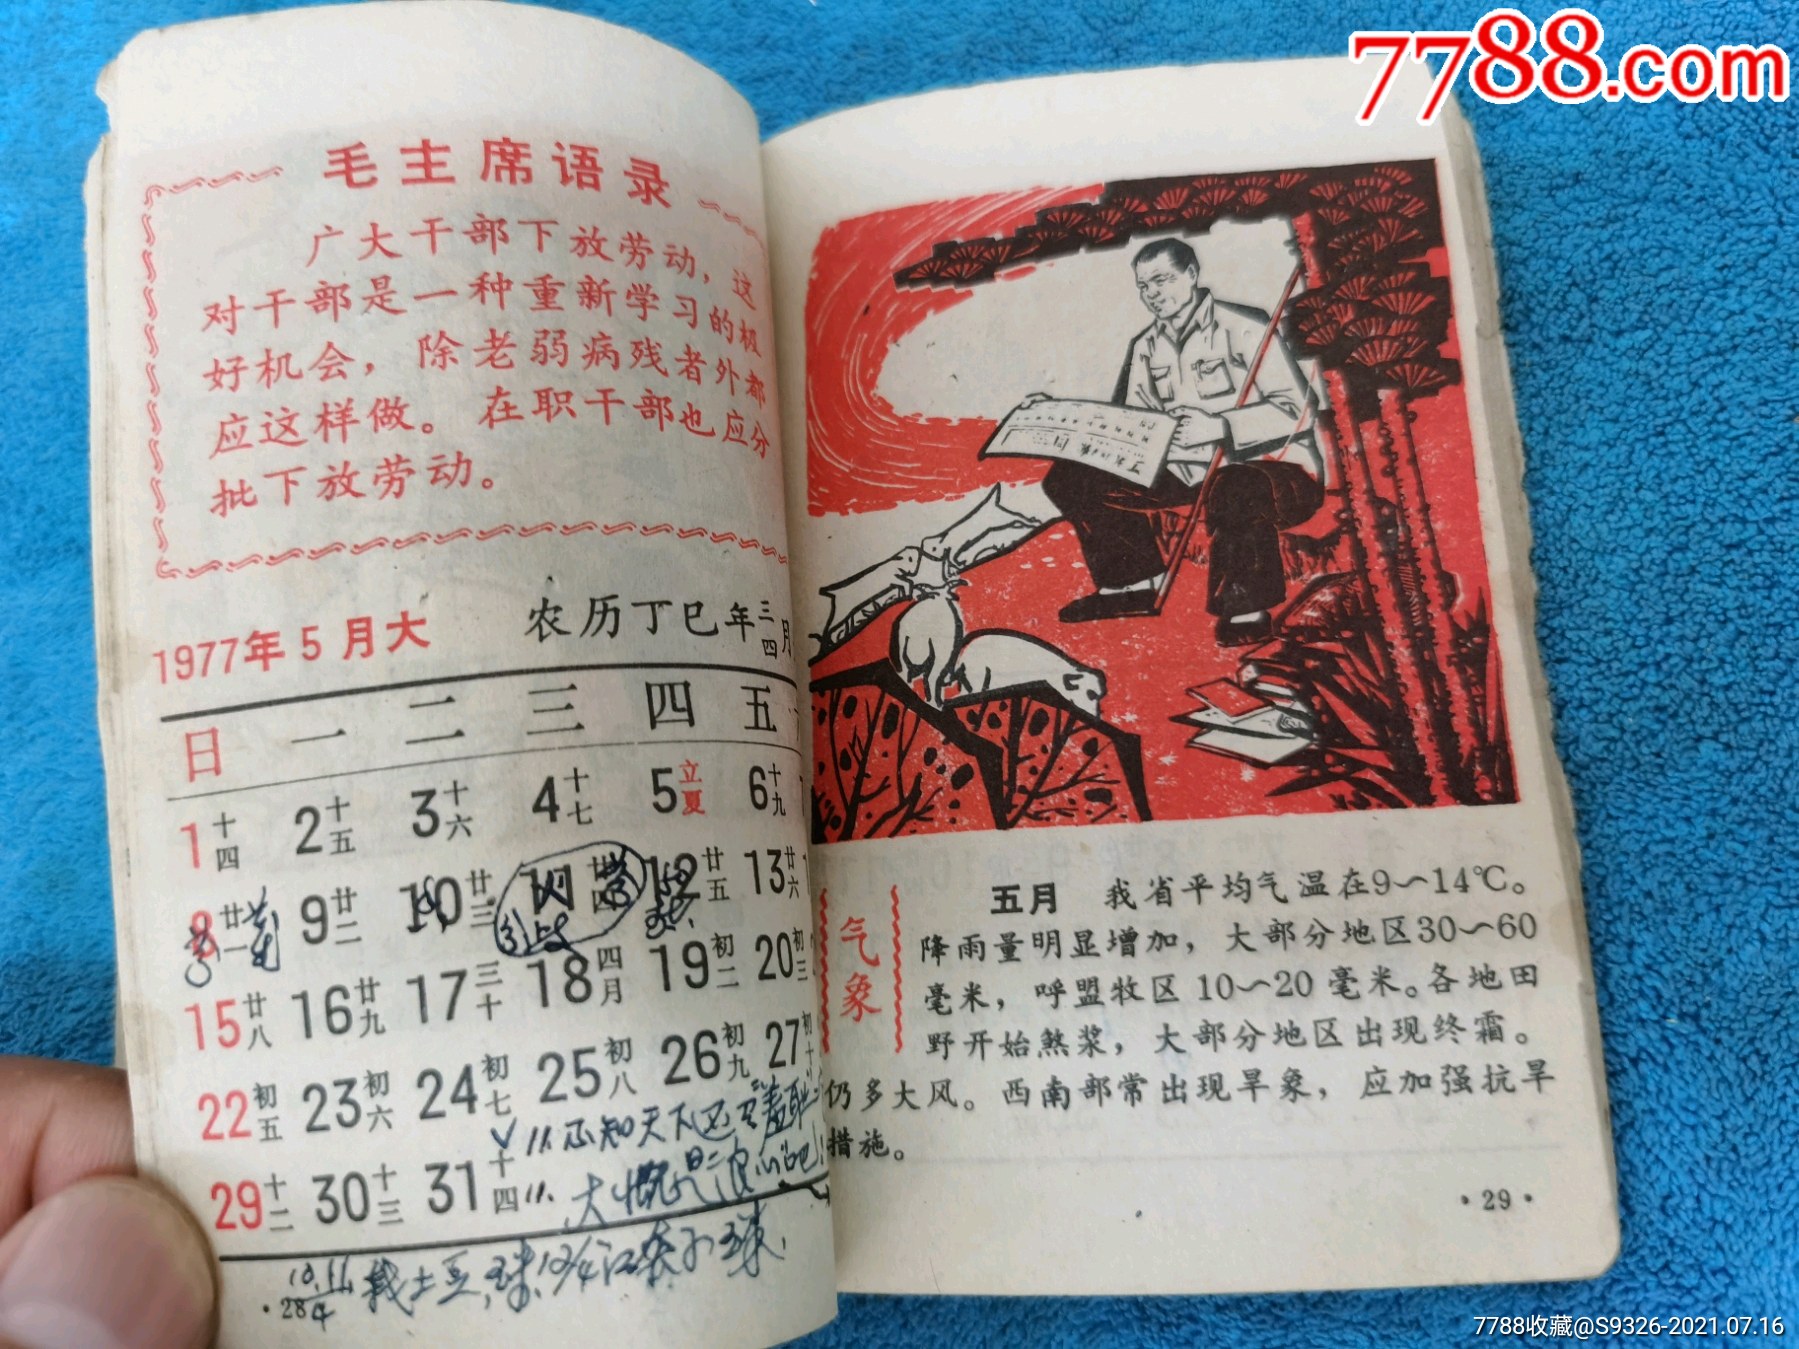 7788.com
毛主席语录
广大干部下放劳动，这
对干部是一种重新学习的极
好机会，除老弱病残者外都
应这样做。在职干部也应分
批下放劳动。
1977年5月大 农历丁巳年三四月
日 一 二 三 四 五
1十四 2十五 3十六 4十七 5立夏 6十九
8廿一 9廿二 10廿三 11廿四 12廿五 13廿六
15廿八 16廿九 17三十 18四月 19初二 20初三
22初五 23初六 24初七 25初八 26初九 27初十
29十二 30十三 31十四
·28
气象
五月 我省平均气温在9～14℃。
降雨量明显增加，大部分地区30～60
毫米，呼盟牧区10～20毫米。各地田
野开始煞浆，大部分地区出现终霜。
仍多大风。西南部常出现旱象，应加强抗旱
措施。
·29·
7788收藏@S9326-2021.07.16